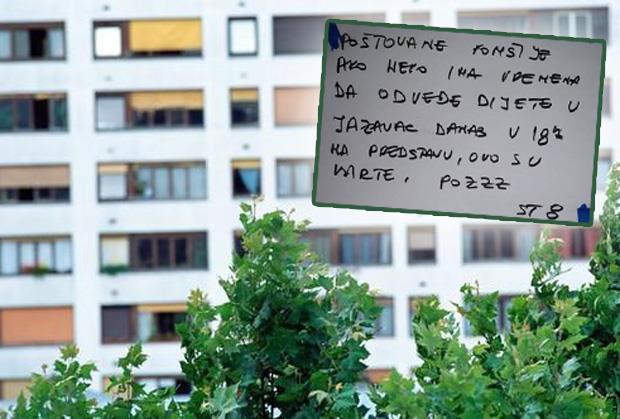 POŠTOVANE KOMŠIJE
AKO NEKO IMA VREMENA
DA ODVEDE DIJETE U
JAZAVAC DANAS U 18h
NA PREDSTAVU, OVO SU
KARTE. POZZZ
ST 8